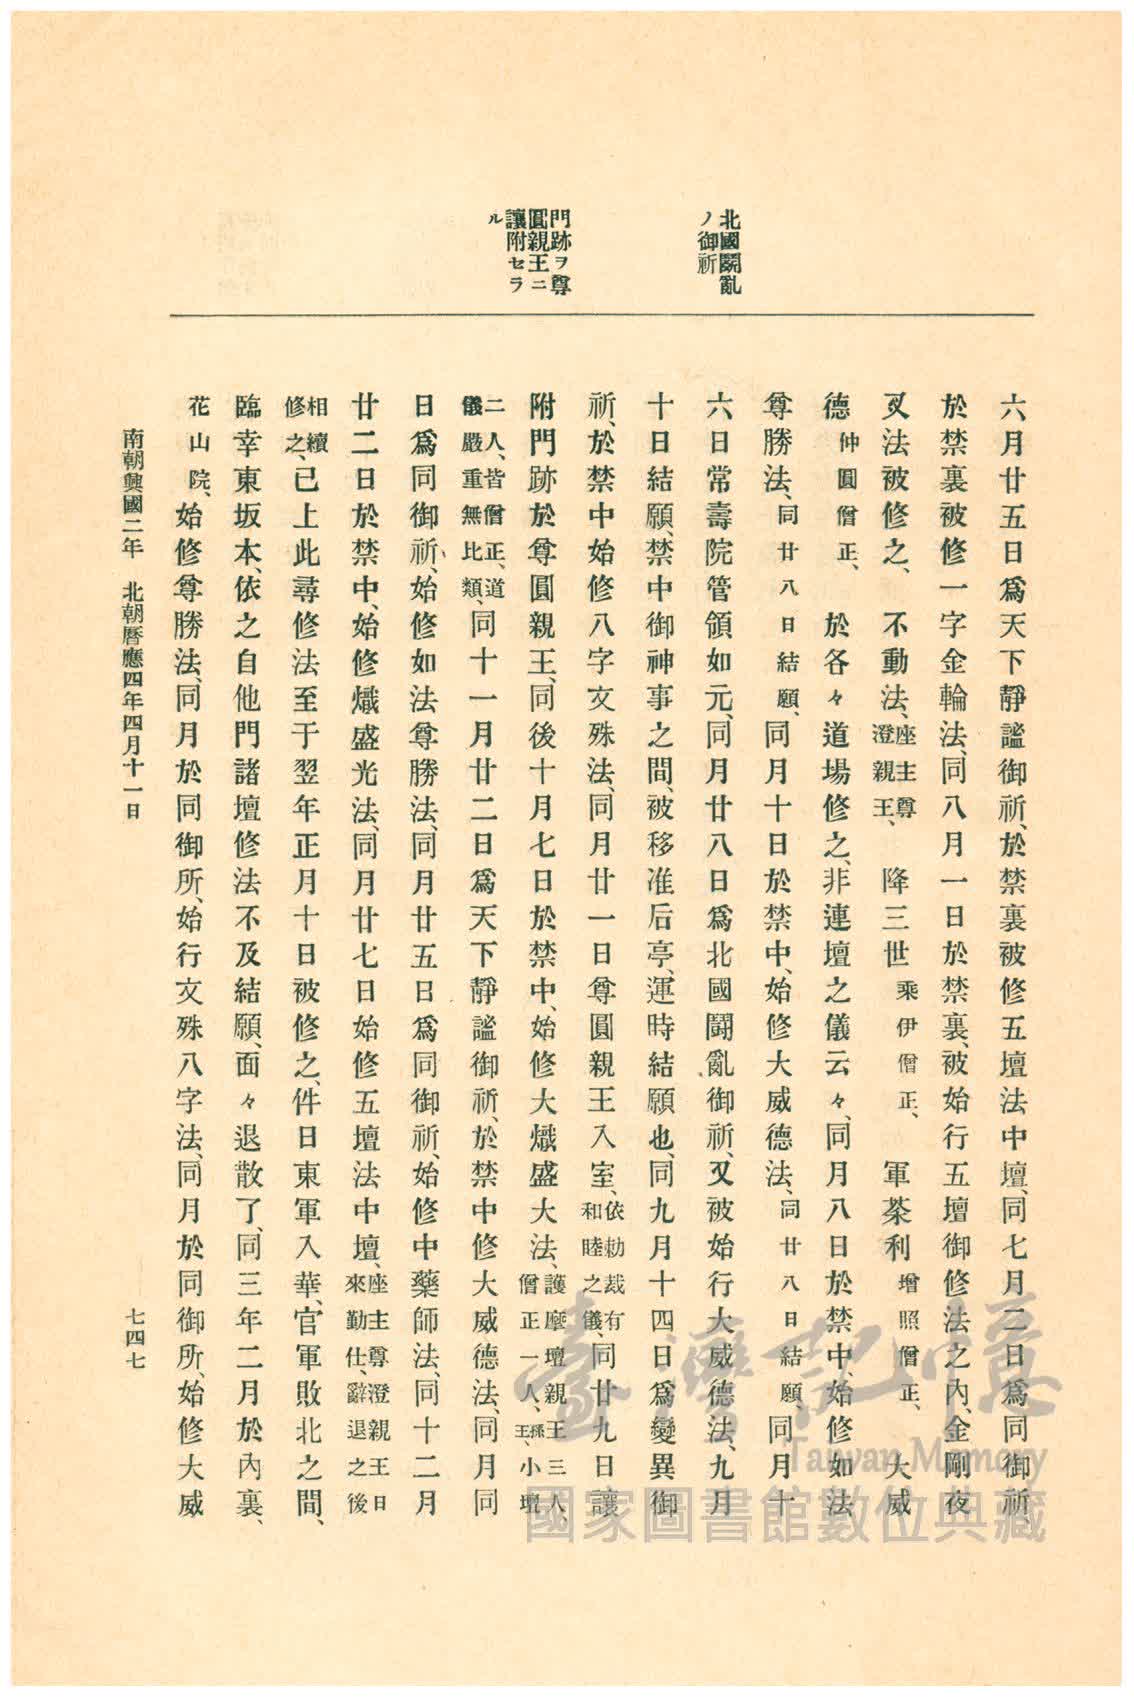 北國鬪亂
ノ御祈
門跡ヲ尊
圓親王ニ
讓附セラ
ル
六月廿五日爲天下靜謐御祈、於禁裏被修五壇法中壇、同七月二日爲同御祈、
於禁裏被修一字金輪法、同八月一日於禁裏、被始行五壇御修法之內、金剛夜
叉法被修之、不動法、座主尊澄親王、降三世乘伊僧正、軍荼利增照僧正、大威
德仲圓僧正、於各々道場修之、非連壇之儀云々、同月八日於禁中、始修如法
尊勝法、同廿八日結願、同月十日於禁中、始修大威德法、同廿八日結願、同月十
六日常壽院管領如元、同月廿八日爲北國鬪亂御祈、又被始行大威德法、九月
十日結願、禁中御神事之間、被移准后亭、運時結願也、同九月十四日爲變異御
祈、於禁中始修八字文殊法、同月廿一日尊圓親王入室、依勅裁有和睦之儀、同廿九日讓
附門跡於尊圓親王、同後十月七日於禁中、始修大熾盛大法、護摩壇親王三人、僧正一人、孫王、小壇
二人、皆僧正、道儀嚴重無比類、同十一月廿二日爲天下靜謐御祈、於禁中修大威德法、同月同
日爲同御祈、始修如法尊勝法、同月廿五日爲同御祈、始修中藥師法、同十二月
廿二日於禁中、始修熾盛光法、同月廿七日始修五壇法中壇、座主尊澄親王日來勤仕、辭退之後
相續修之、已上此尋修法至于翌年正月十日被修之、件日東軍入華、官軍敗北之間、
臨幸東坂本、依之自他門諸壇修法不及結願、面々退散了、同三年二月於內裏、
花山院、始修尊勝法、同月於同御所、始行文殊八字法、同月於同御所、始修大威
南朝興國二年 北朝曆應四年四月十一日
七四七
臺灣記憶
Taiwan Memory
國家圖書館數位典藏